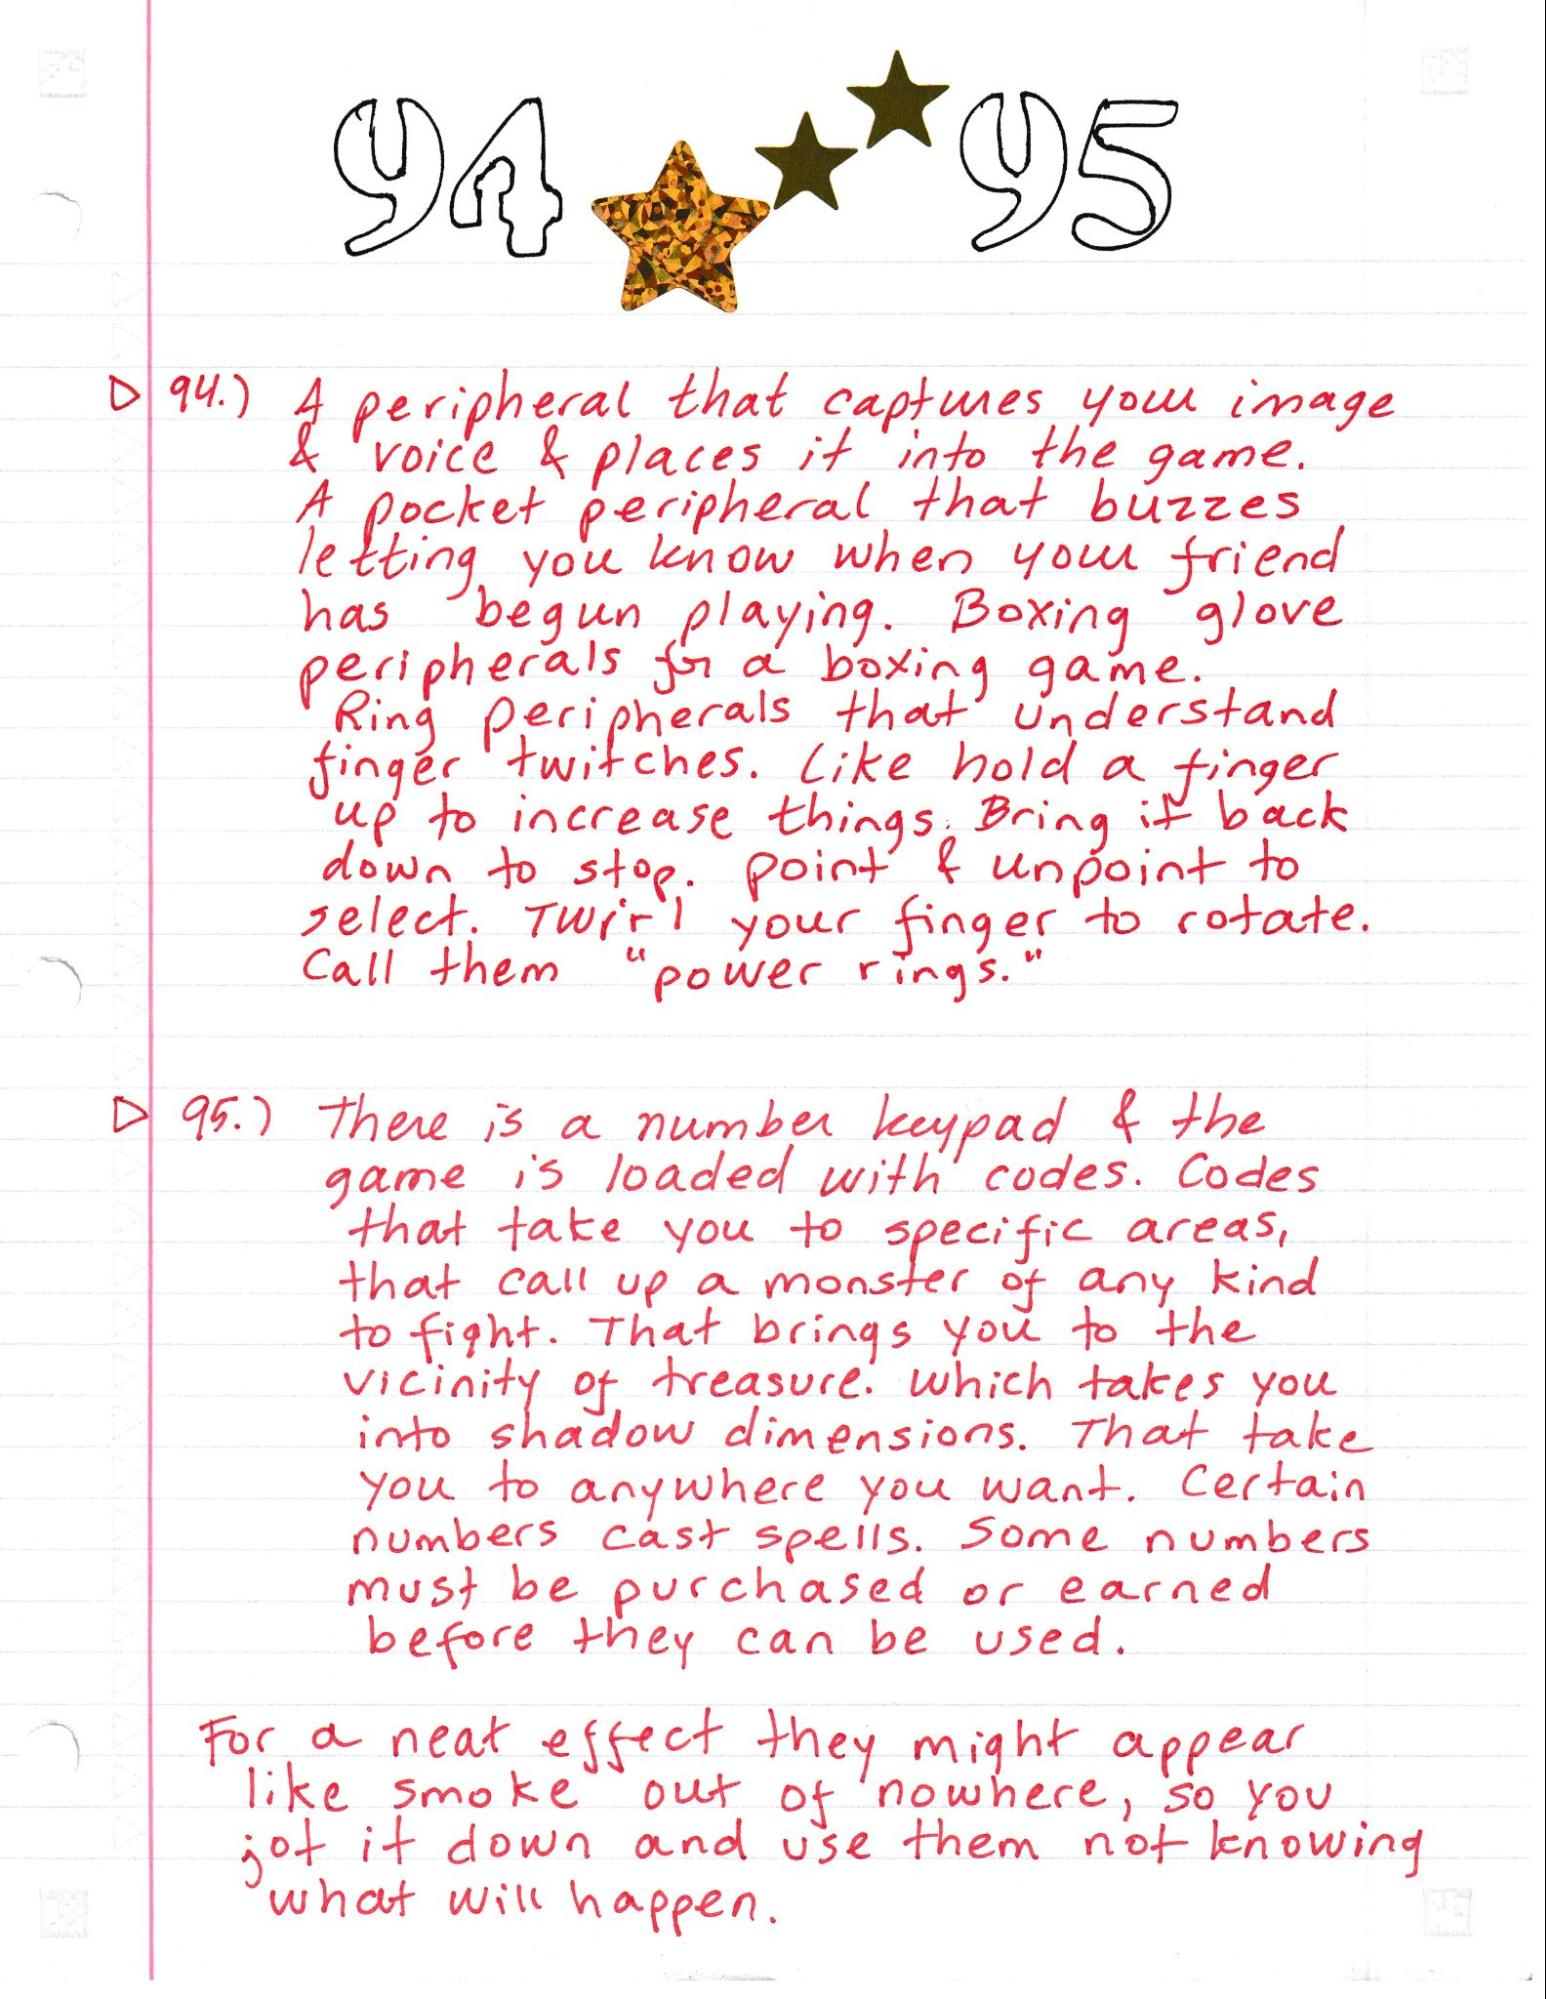 94 95
94.) A peripheral that captures your image
& voice & places it into the game.
A pocket peripheral that buzzes
letting you know when your friend
has begun playing. Boxing glove
peripherals for a boxing game.
Ring peripherals that understand
finger twitches. Like hold a finger
up to increase things. Bring it back
down to stop. Point & unpoint to
select. Twirl your finger to rotate.
Call them "power rings."
95.) There is a number keypad & the
game is loaded with codes. Codes
that take you to specific areas,
that call up a monster of any kind
to fight. That brings you to the
vicinity of treasure. Which takes you
into shadow dimensions. That take
you to anywhere you want. Certain
numbers cast spells. Some numbers
must be purchased or earned
before they can be used.
For a neat effect they might appear
like smoke out of nowhere, so you
jot it down and use them not knowing
what will happen.